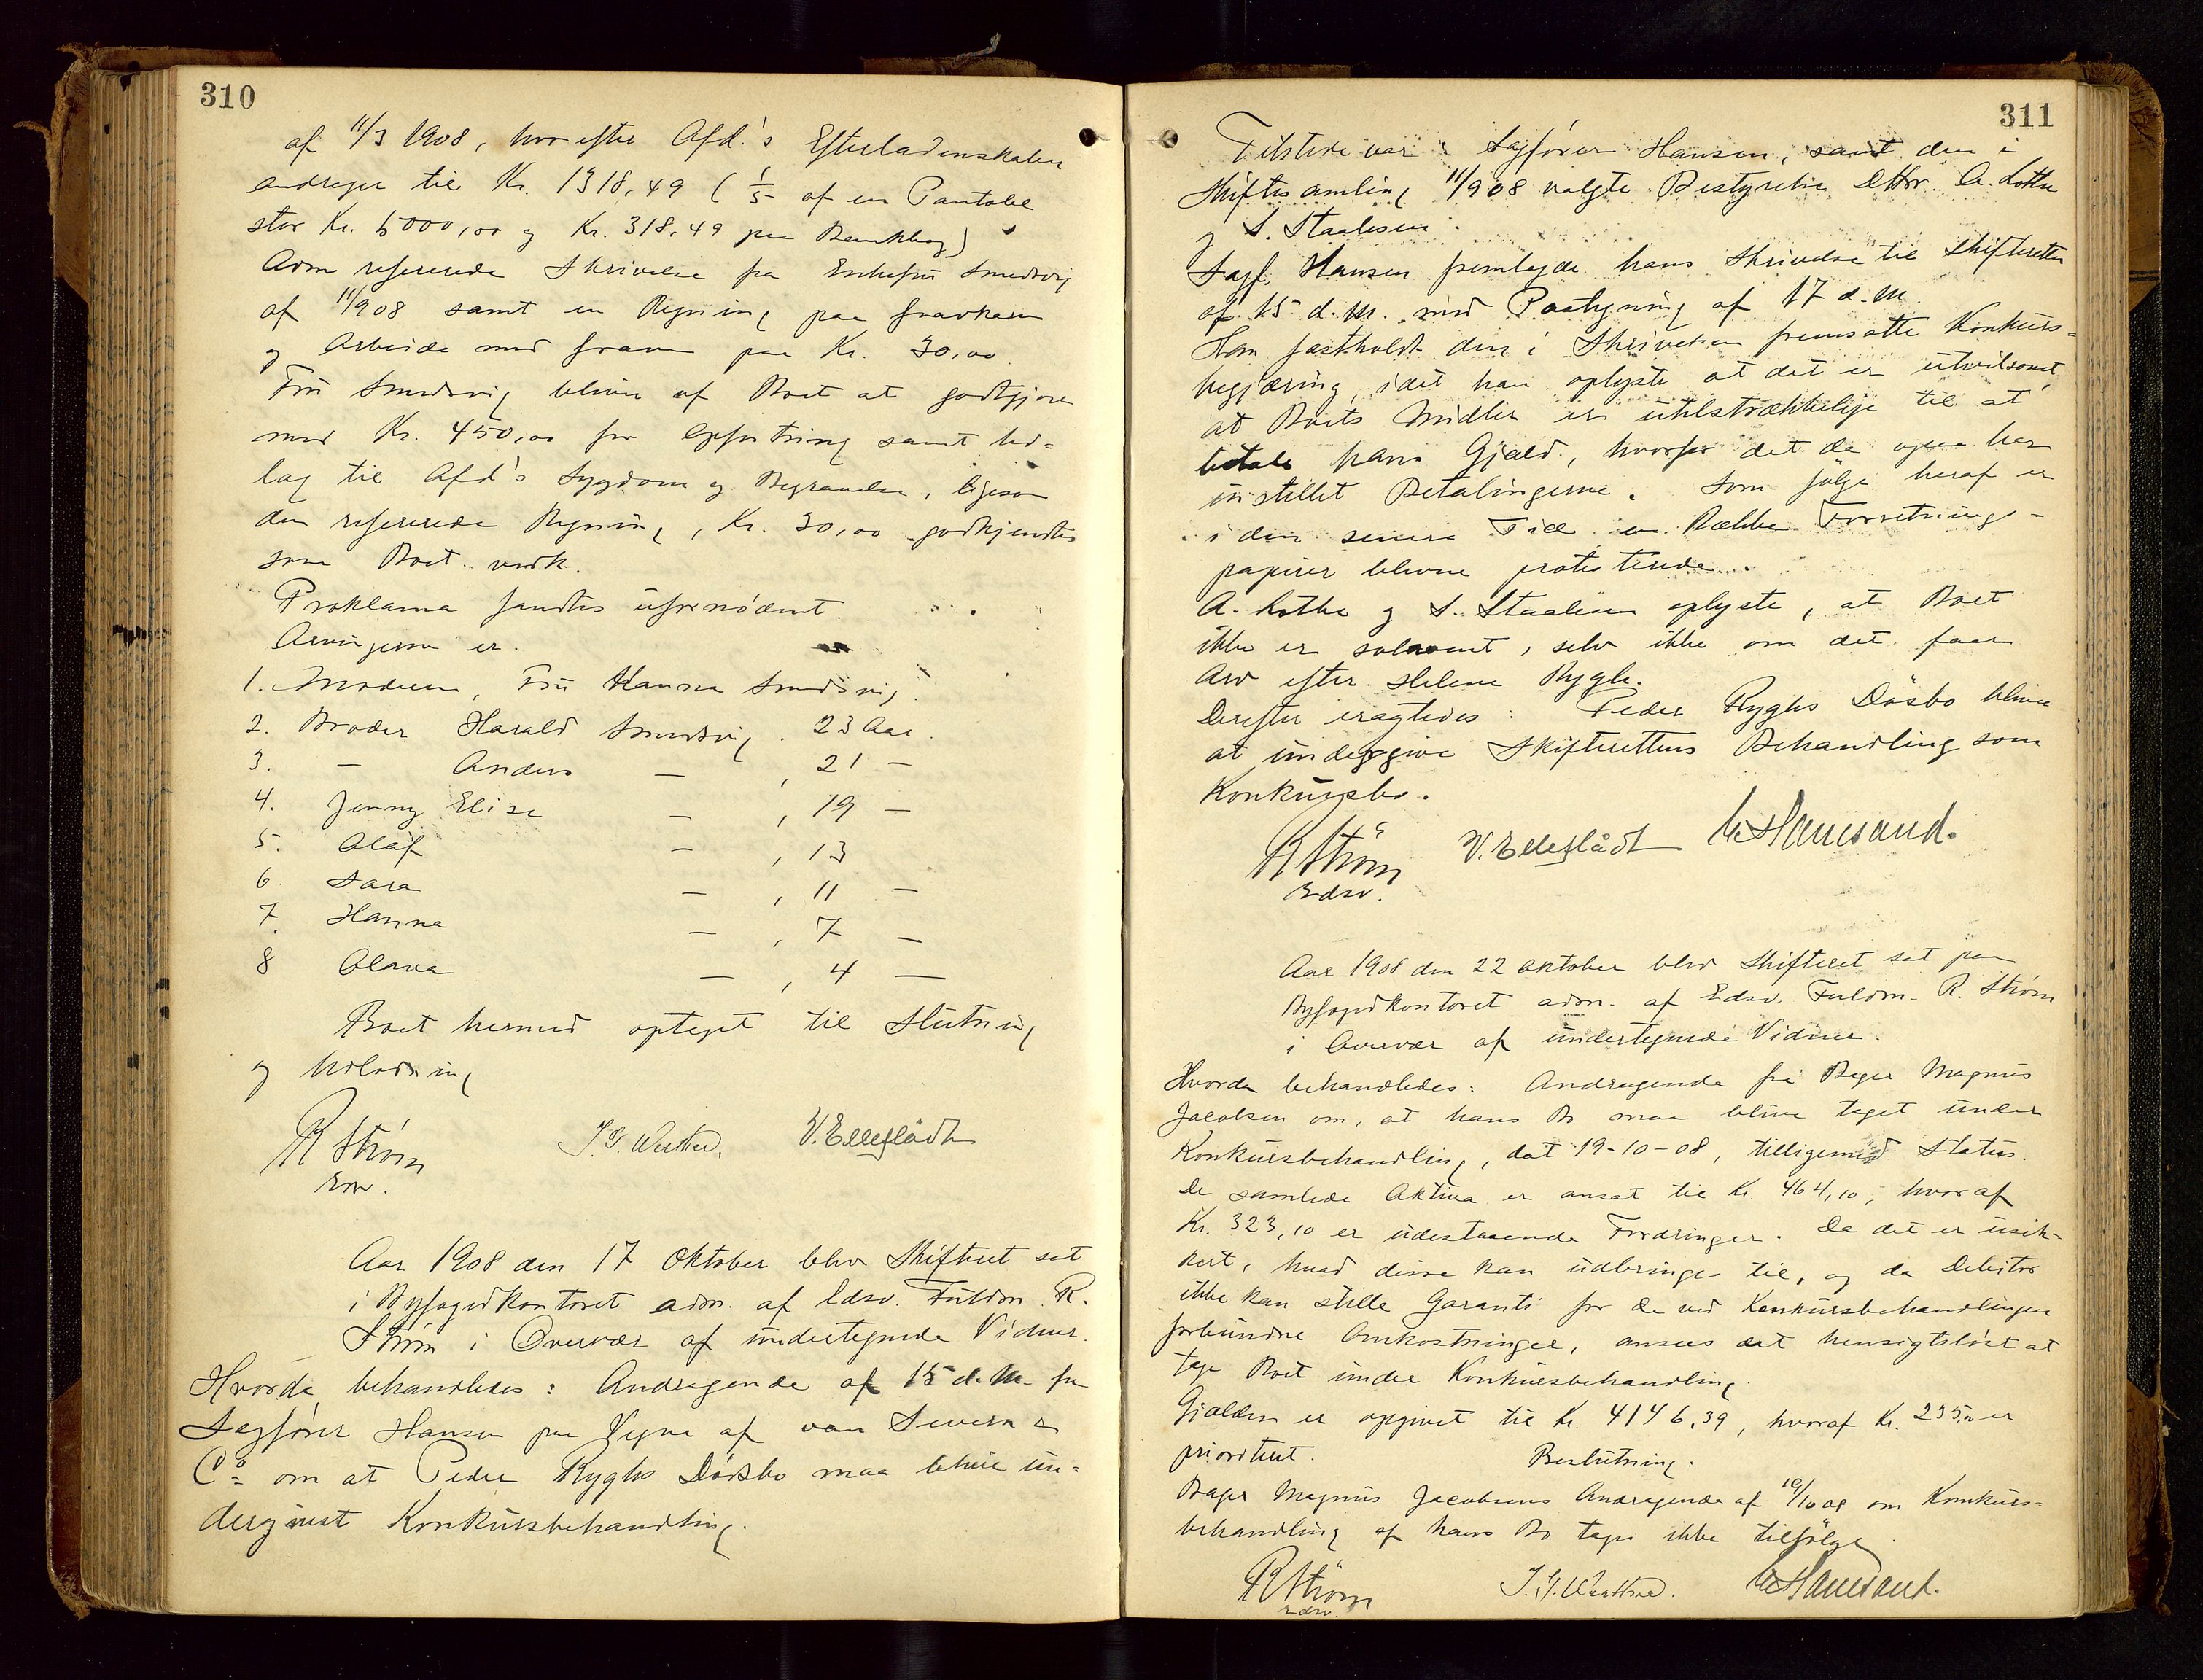 310
af 11/3 1908, hvorefter Afd.'s Efterladenskaber
andrager til Kr. 1318,49 (1/5 af en Pantobl
stor Kr. 5000,00 og Kr. 318,49 paa Bankbog)
Adm refererede Skrivelse fra Enkefru Smedsvig
af 11/9 08 samt en Regning paa
og Arbeide med Graven paa Kr. 30,00.
Fru Smedsvig bliver af Boet at godtgjøre
med Kr. 450,00 for Opfostring samt ud=
læg til Afd's Sygdom og Begravelse, ligesom
den refererede Regning, Kr. 30,00 godkjendtes
som Boet vedk.
Proklama fandtes ufornødent.
Arvingerne er.
1. Moderen, Fru Hanna Smedsvig
2. Broder Harald Smedsvig. 23 Aar.
3. — Anders — , 21 —
4. Jenny Elise — , 19 —
5. Olaf — , 13
6. Sara — , 11 —
7. Hanna — , 7 —
8 Olava — , 4 —
Boet hermed optaget til Slutning
og Udlodning
R Strøm J.G. Wuttu. V. Ellefládt
Edsv.
Aar 1908 den 17 Oktober blev Skifteret sat
i Byfogedkontoret adm. af Edsv. Fuldm. R.
Strøm i Overvær af undertegnede Vidner.
Hvorda behandledes: Andragende af 15 d.M. fra
Sagfører Hansen paa Vegne af van Severn &
Co om at Peder Ryghs Dødsbo maa blive un=
dergivet Konkursbehandling.
311
Tilstede var: Sagfører Hansen, samt den i
Skiftesamling 11/9 08 valgte Bestyrelse DHrr. A. Lothe
og S. Staalesen.
Sagf. Hansen fremlagde hans Skrivelse til Skifteretten
af 15 d.M. med Paategning af 17 d.M.
Han fastholdt den i Skrivelsen fremsatte Konkurs=
begjæring, idet han oplyste at det er utvilsomt,
at Boets Midler er utilstrækkelige til at
betale hans Gjæld, hvorfor det da ogsaa har
instillet Betalingerne. Som følge heraf er
i den senere Tid en Række Forretnings-
papirer blevne protesterede.
A. Lothe og S. Staalesen oplyste, at Boet
ikke er solvent, selv ikke om det faar
Arv efter Helene Rygh.
Derefter eragtedes: Peder Ryghs Dösbo bliver
at undergive Skifterettens Behandling som
Konkursbo.
R Strøm V. Ellefládt
Edsv.
Aar 1908 den 22 Oktober blev Skifteret sat paa
Byfogedkontoret adm. af Edsv. Fuldm. R. Strøm
i Overvær af undertegnede Vidner.
Hvorda behandledes: Andragende fra Bager Magnus
Jacobsen om, at hans Bo maa blive taget under
Konkursbehandling, dat 19-10-08, tilligemed Status.
De samlede Aktiva er ansat til Kr. 464,10, hvoraf
Kr. 323,10 er udestaaende Fordringer. Da det er usik=
kert, hvad disse kan udbringes til, og da Debitor
ikke kan stille Garanti for de ved Konkursbehandlingen
forbundne Omkostninger, ansees det hensigtsløst at
tage Boet under Konkursbehandling.
Gjælden er opgivet til Kr. 4146,39, hvoraf Kr. 235,00 er
prioritert.
Beslutning:
Bager Magnus Jacobsens Andragende af 19/10 08 om Konkurs=
behandling af hans Bo tages ikke tilfølge
R Strøm J.G. Wuttu.
Edsv.